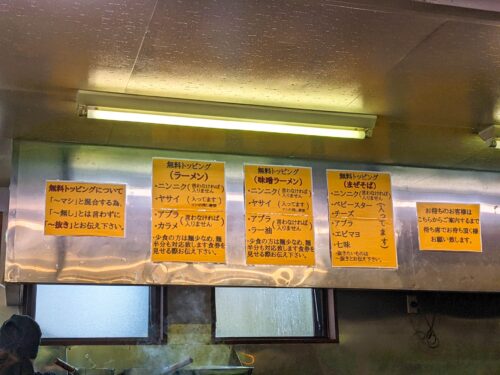 無料トッピングについて
「〜マシ」と混合する為、
「〜無し」とは言わずに
「〜抜き」とお伝え下さい。
無料トッピング
(ラーメン)
・ニンニク(言わなければ入りません)
・ヤサイ(入ってます)
・アブラ
・カラメ(言わなければ入りません)
・少食の方は麺少なめ、麺
半分も対応致します食券を
見せる際お伝え下さい
無料トッピング
(味噌ラーメン)
・ニンニク(言わなければ入りません)
・ヤサイ(入ってます)
・アブラ
・ラー油(言わなければ入りません)
・少食の方は麺少なめ、麺
半分も対応致します食券を
見せる際お伝え下さい
無料トッピング
(まぜそば)
・ニンニク(言わなければ入りません)
・ベビースター
・チーズ
・アブラ
・エビマヨ
・七味
(入ってます)
・抜きたいものは
〜抜きとお伝え下さい
お待ちのお客様は
こちらからご案内するまで
待ち席でお待ち頂く様
お願い致します。